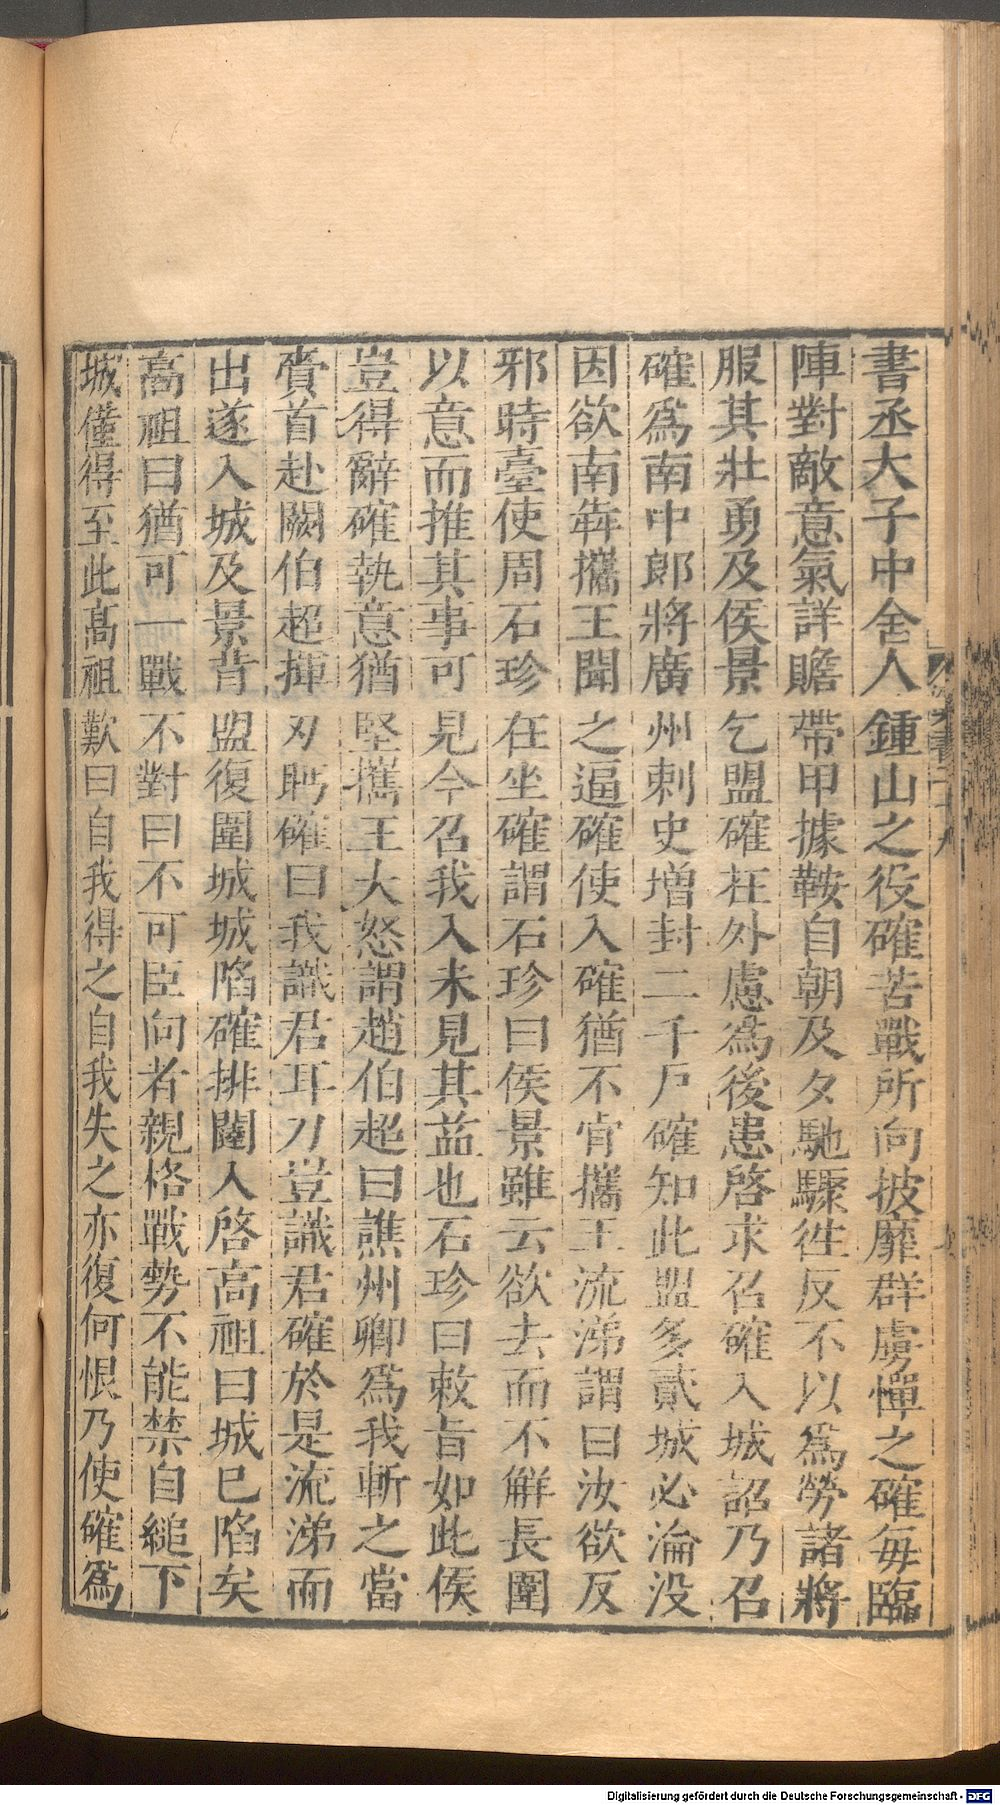 書丞大子中舍人鍾山之役確苦戰所向披靡群虜憚之確每臨
陣對敵意氣詳贍帶甲據鞍自朝及夕馳驟徃反不以爲勞諸將
服其壯勇及侯景乞盟確在外慮爲後患啓求召確入城詔乃召
確爲南中郎將廣州刺史增封二千戸確知此盟多貳城必淪没
因欲南奔攜王聞之逼確使入確猶不肯攜王流涕謂曰汝欲反
邪時臺使周石珍在坐確謂石珍曰侯景雖云欲去而不解長圍
以意而推其事可見今召我入未見其益也石珍曰敕旨如此侯
豈得辭確執意猶堅攜王大怒謂趙伯超曰譙州卿爲我斬之當
賫首赴闕伯超揮刃眄確曰我識君耳刀豈識君確於是流涕而
出遂入城及景背盟復圍城城陷確排闥入啓高祖曰城已陷矣
高祖曰猶可一戰不對曰不可臣向者親格戰勢不能禁自縋下
城僅得至此高祖歎曰自我得之自我失之亦復何恨乃使確爲
Digitalisierung gefördert durch die Deutsche Forschungsgemeinschaft - DFG